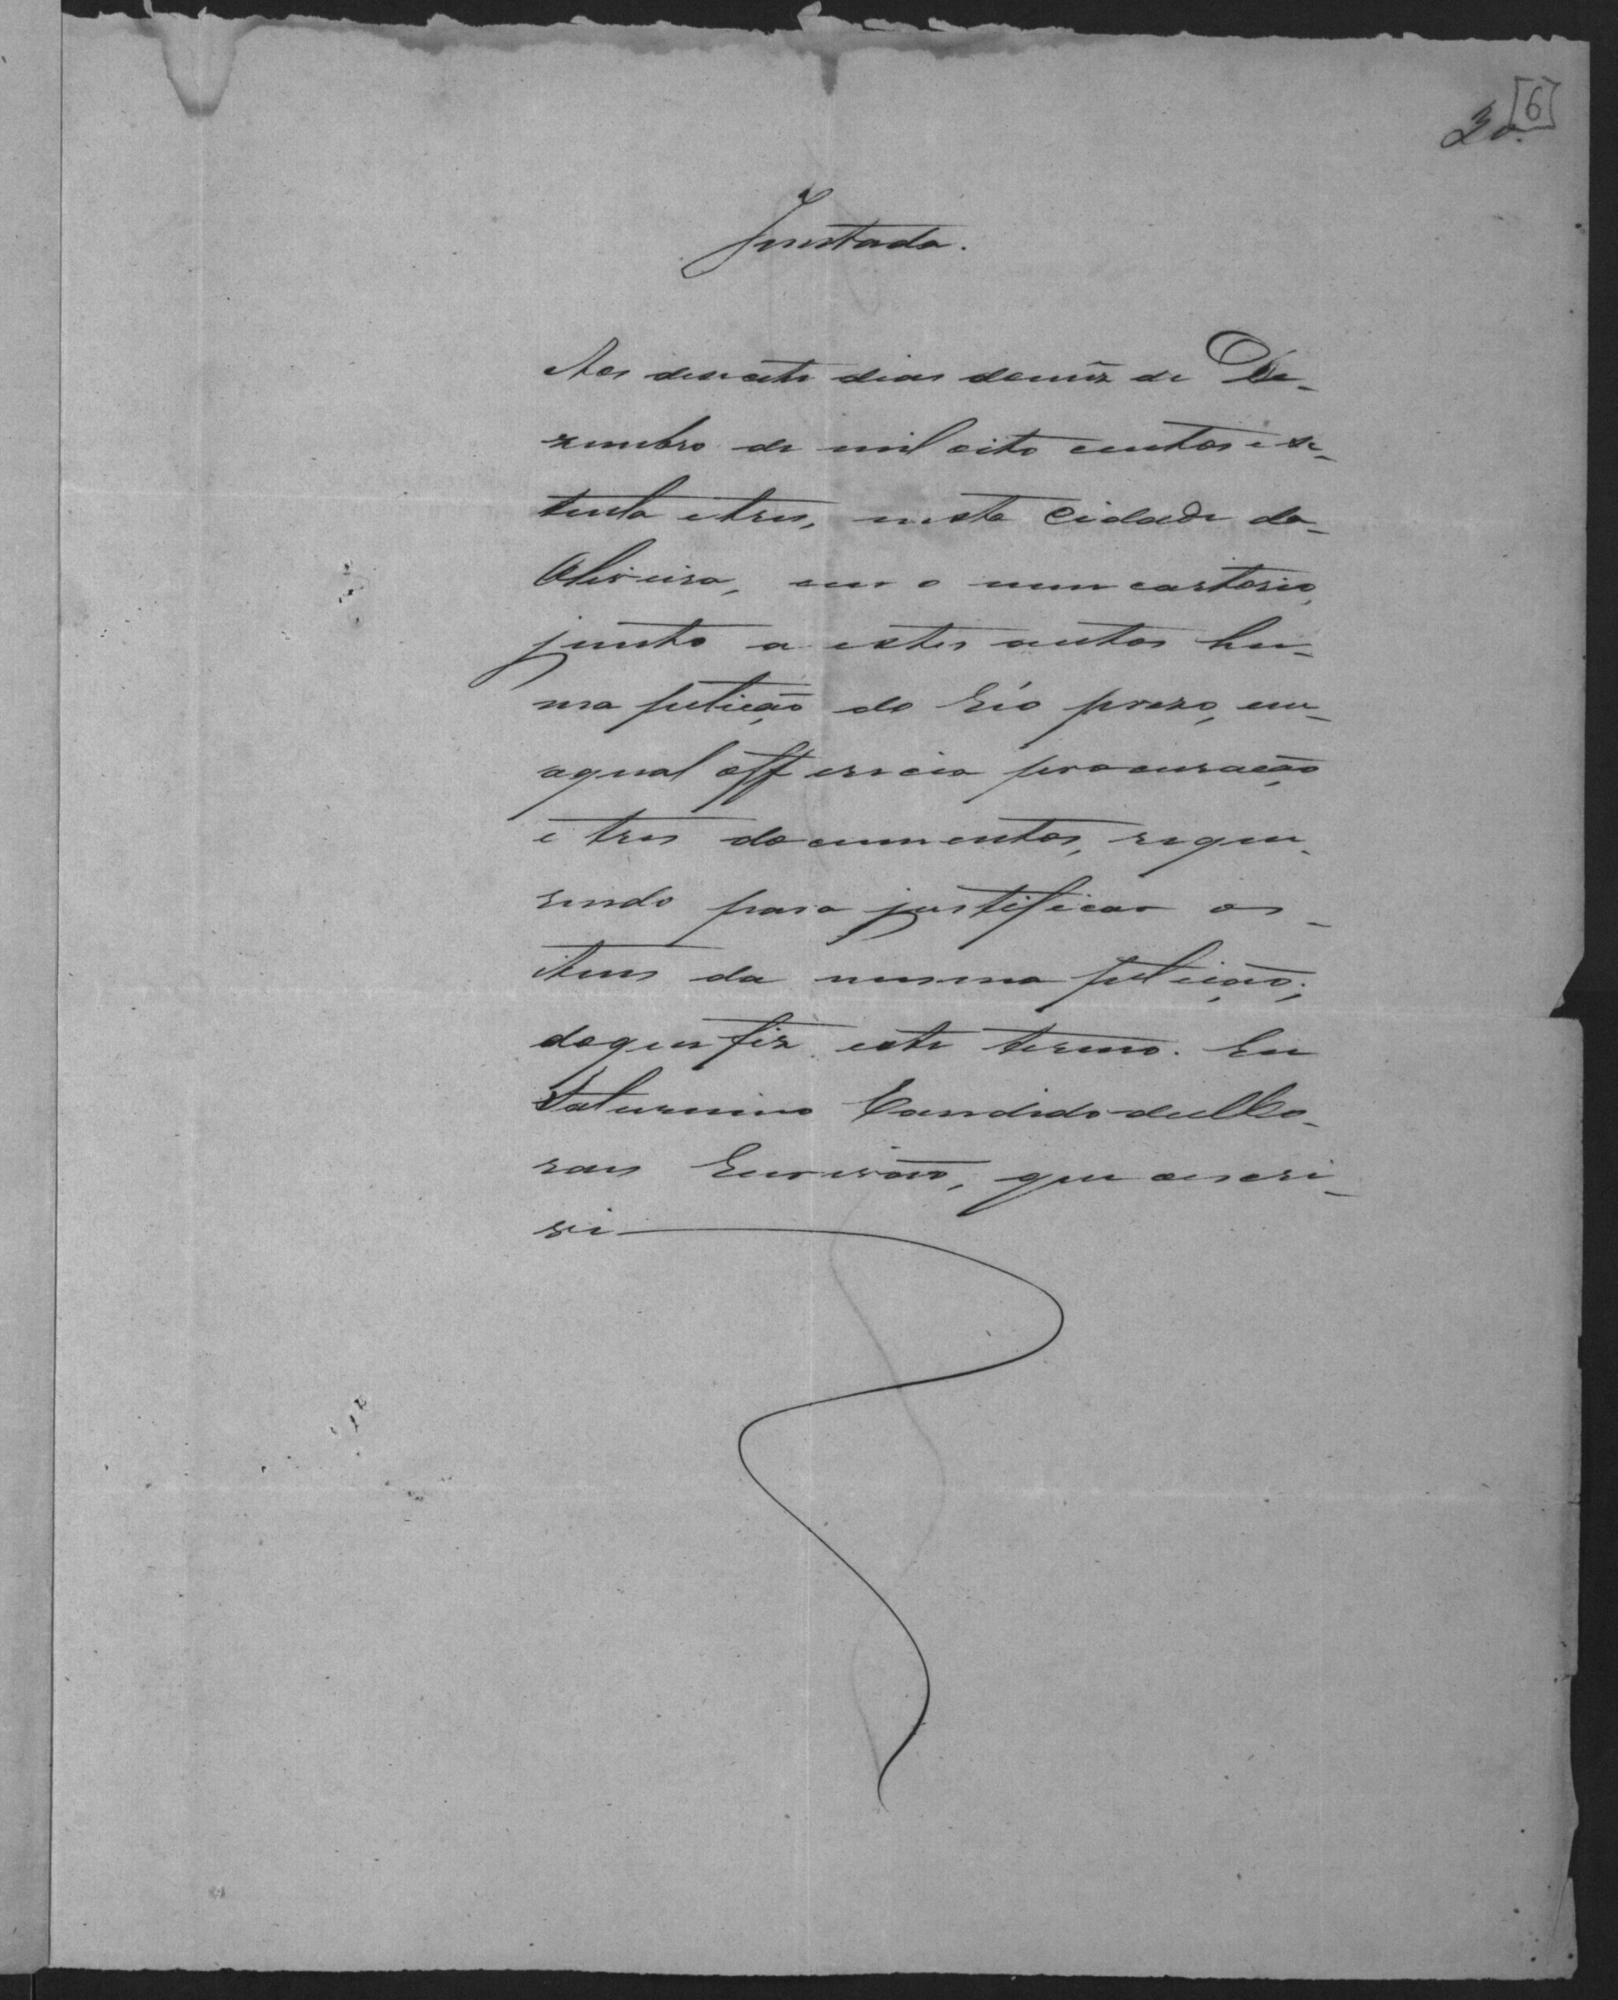 [6]
Juntada.
Aos desoito dias do mez de De-
zembro de mil oito centos e se-
tenta e tres, nesta Cidade da
Oliveira, em o meu cartorio,
junto a estes autos hu-
ma petição do Réo prezo, em
a qual offerecia procuração
e tres documentos, reque-
rendo para justificar os
itens da mesma petição;
do que fiz este termo. Eu
Saturnino Candido de Mo-
raes Escrivão, que o escri-
vi